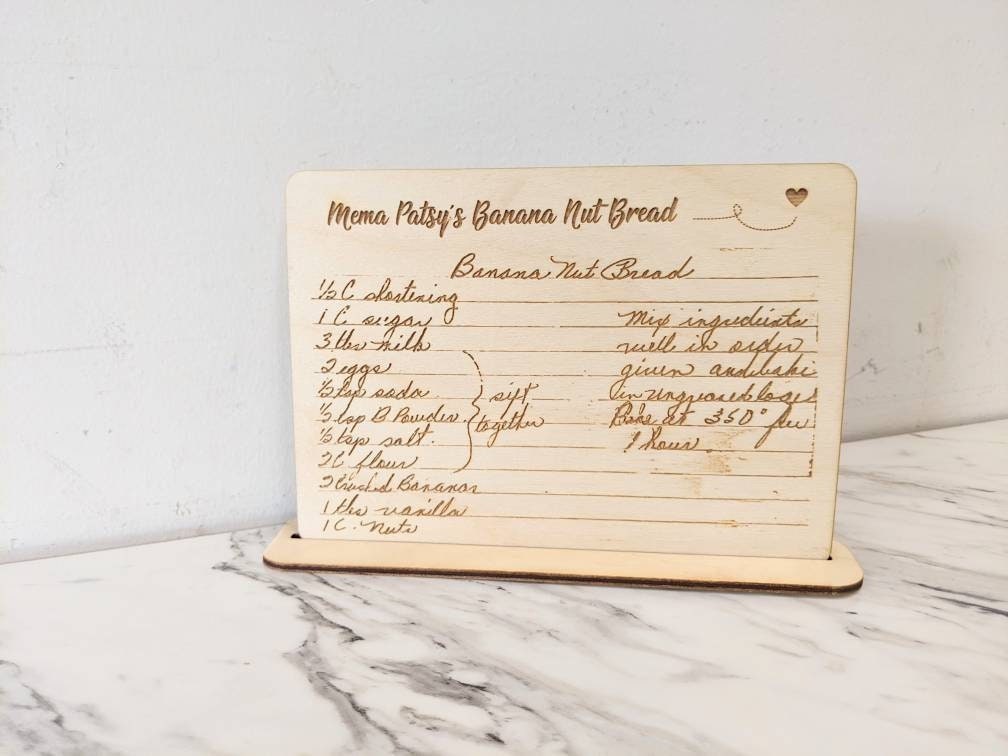 Mema Patsy's Banana Nut Bread
Banana Nut Bread
1/2 C shortening
1 C sugar
3 tbs milk
2 eggs
1/2 tsp soda
1/2 tsp B Powder
1/2 tsp salt.
2 C flour
sift
together
2 crushed Bananas
1 tbs vanilla
1 C. Nuts
Mix ingredients
well in order
given and bake
in ungreased
Bake at 350° for
1 hour.